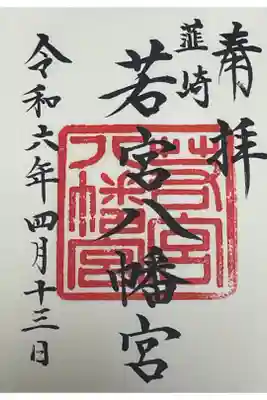 奉拝
韮崎
若宮八幡宮
令和六年四月十三日
若宮
八幡宮